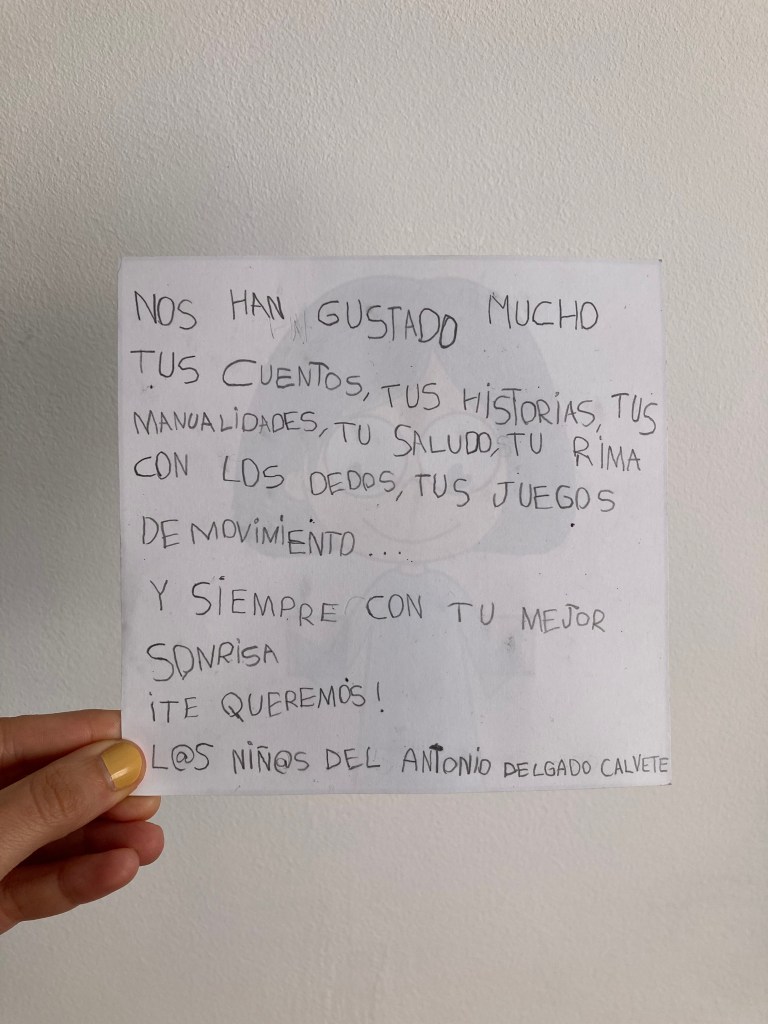 NOS HAN GUSTADO MUCHO
TUS CUENTOS, TUS HISTORIAS, TUS
MANUALIDADES, TU SALUDO, TU RIMA
CON LOS DEDOS, TUS JUEGOS
DE MOVIMIENTO....
Y SIEMPRE CON TU MEJOR
SONRISA
¡TE QUEREMOS!
L@S NIÑ@S DEL ANTONIO DELGADO CALVETE